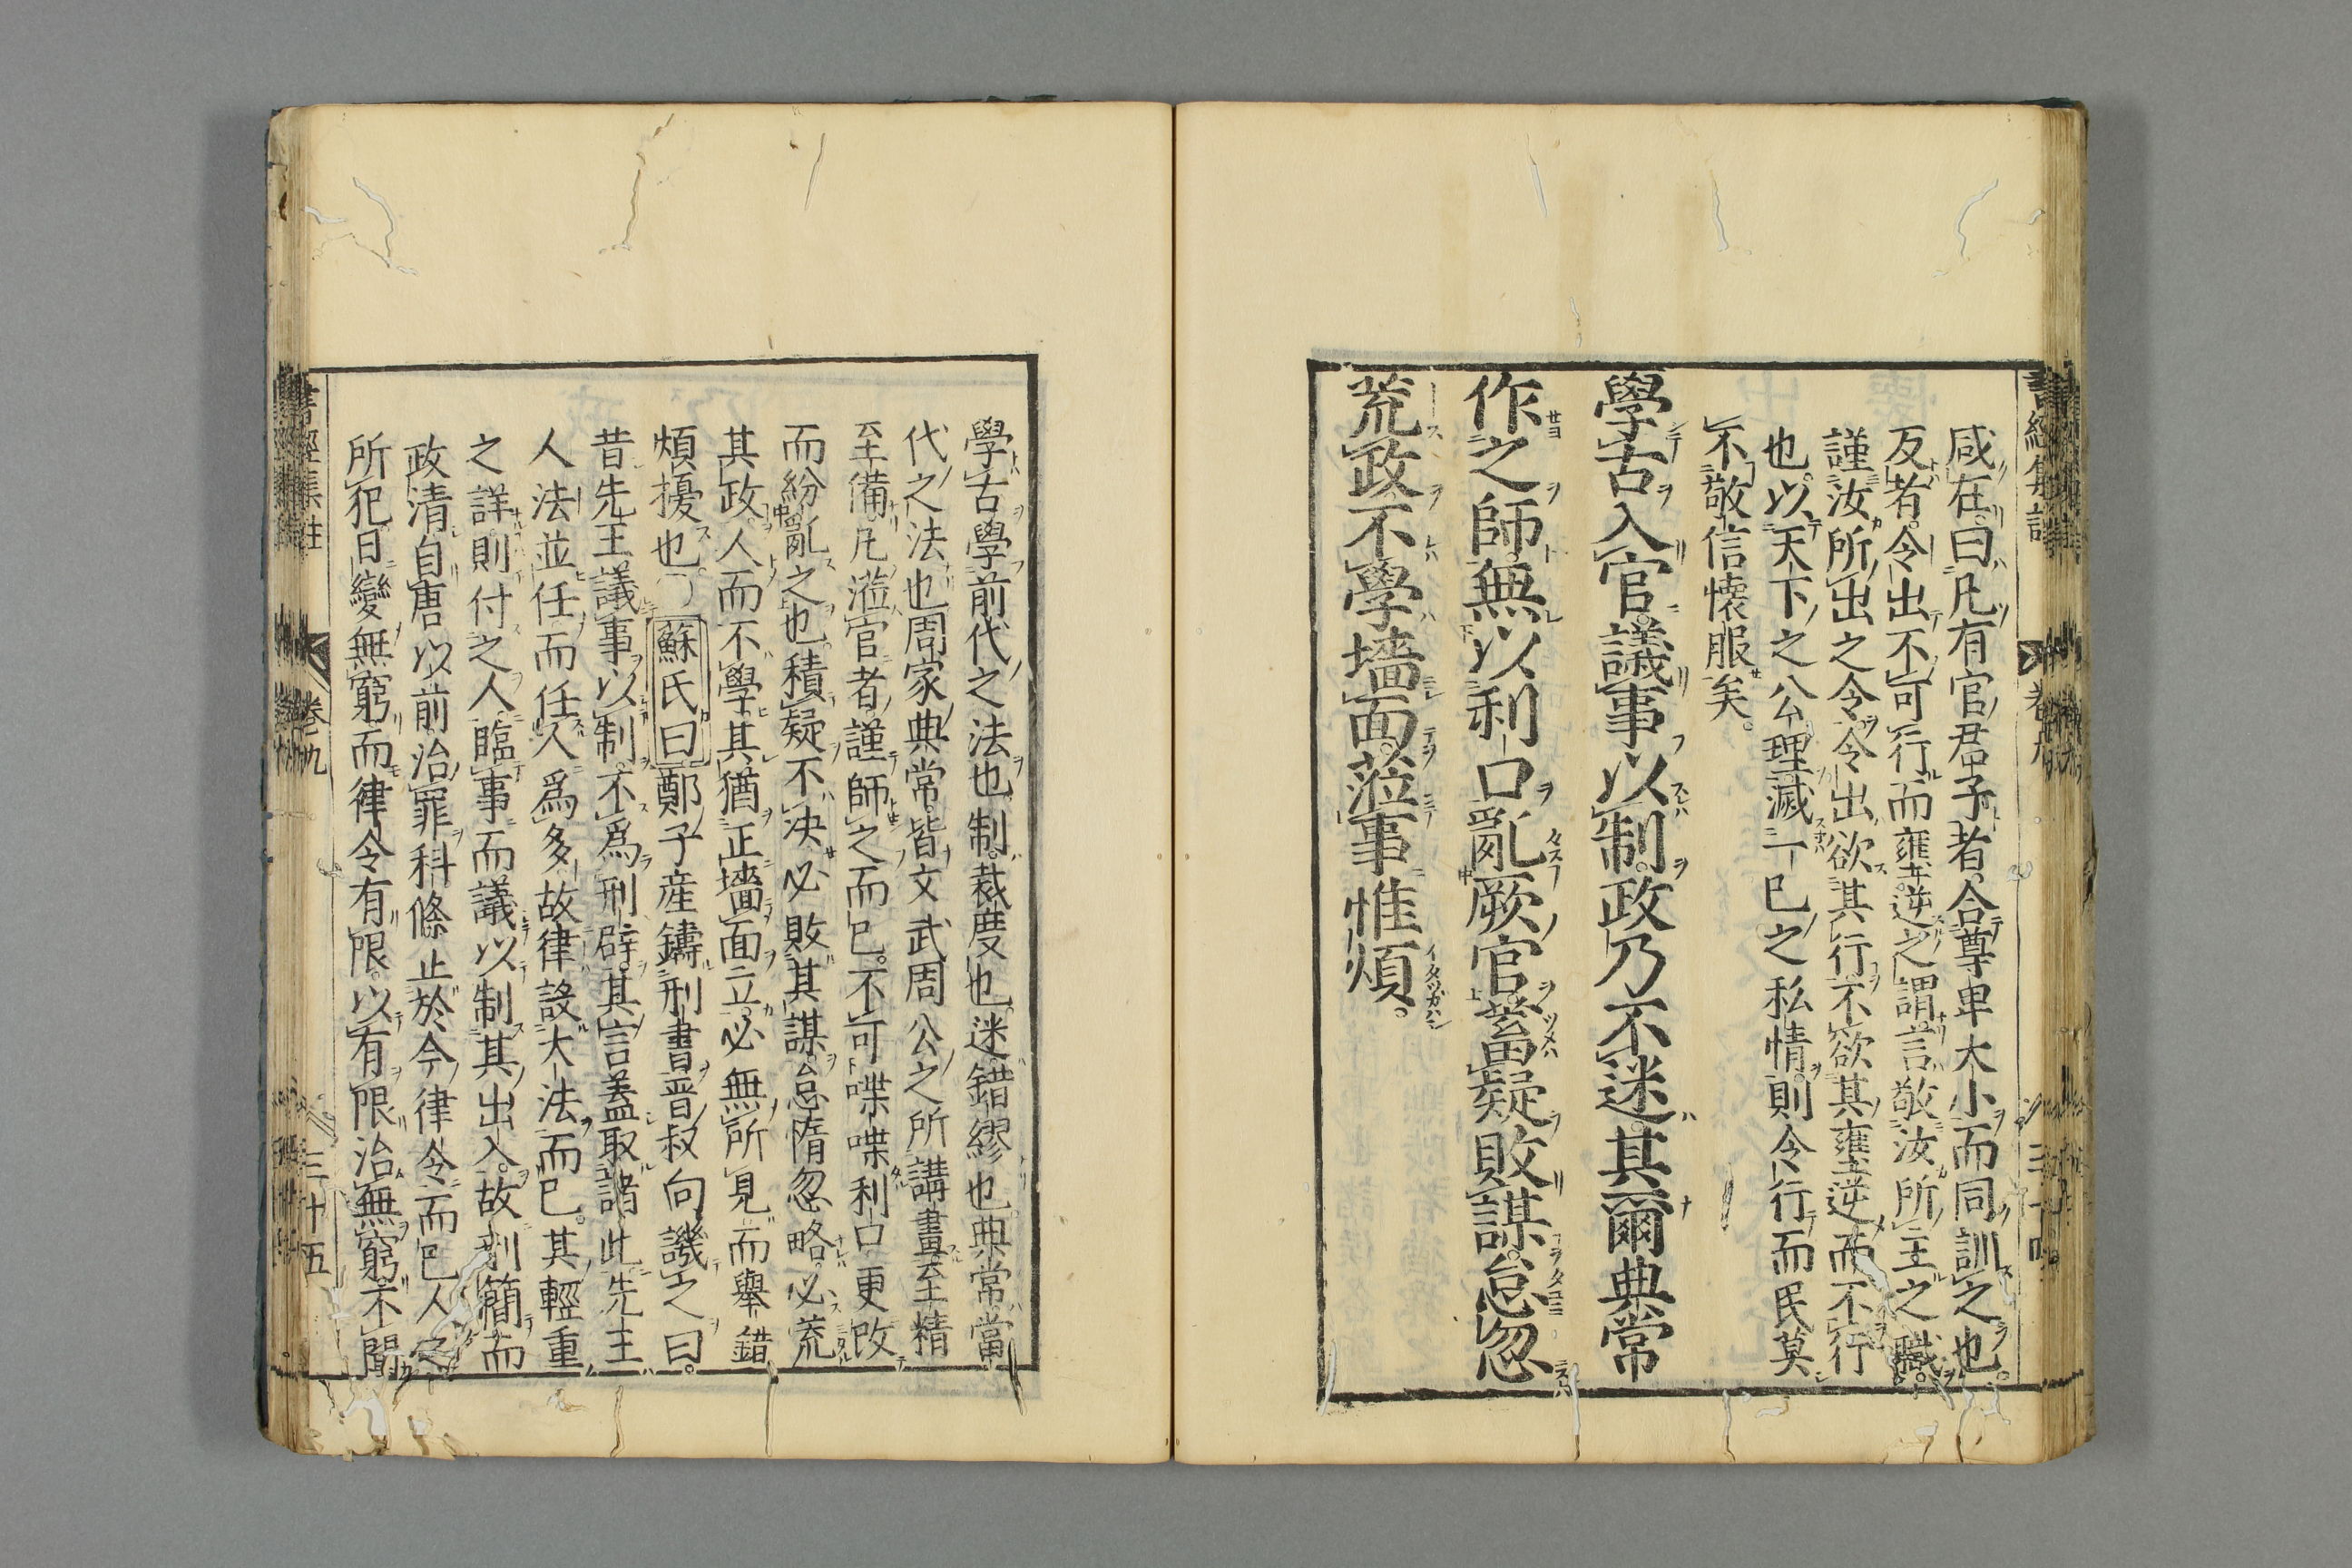 咸在。曰凡有官君子者。合尊卑大小而同訓之也。
反者。令出不可行而壅逆之謂。言敬汝所主之職。
謹汝所出之令。令出欲其行。不欲其壅逆而不行
也。以天下之公理滅一己之私情。則令行而民莫
不敬信懐服矣。
學古入官。議事以制。政乃不迷。其爾典常
作之師。無以利口亂厥官。蓄疑敗謀。怠忽
荒政。不學墻面。蒞事惟煩。
書經集註 卷九 三十四
學古學前代之法也。制。裁度也。迷。錯繆也。典常當
代之法也。周家典常。皆文武周公之所講畫。至精
至備。凡蒞官者。謹師之而已。不可喋喋利口更改
而紛亂之也。積疑不决。必敗其謀。怠惰忽略。必荒
其政。人而不學。其猶正墻面而立。必無所見。而舉錯
煩擾也。○蘇氏曰。鄭子產鑄刑書。晋叔向譏之曰。
昔先王議事以制。不爲刑辟。其言蓋取諸此。先王
人法並任。而任人爲多。故律設大法而已。其輕重
之詳。則付之人。臨事而議。以制其出入。故刑簡而
政清。自唐以前。治罪科條。止於今律令而已。人之
所犯。日變無窮。而律令有限。以有限治無窮。不聞
書經集註 卷九 三十五